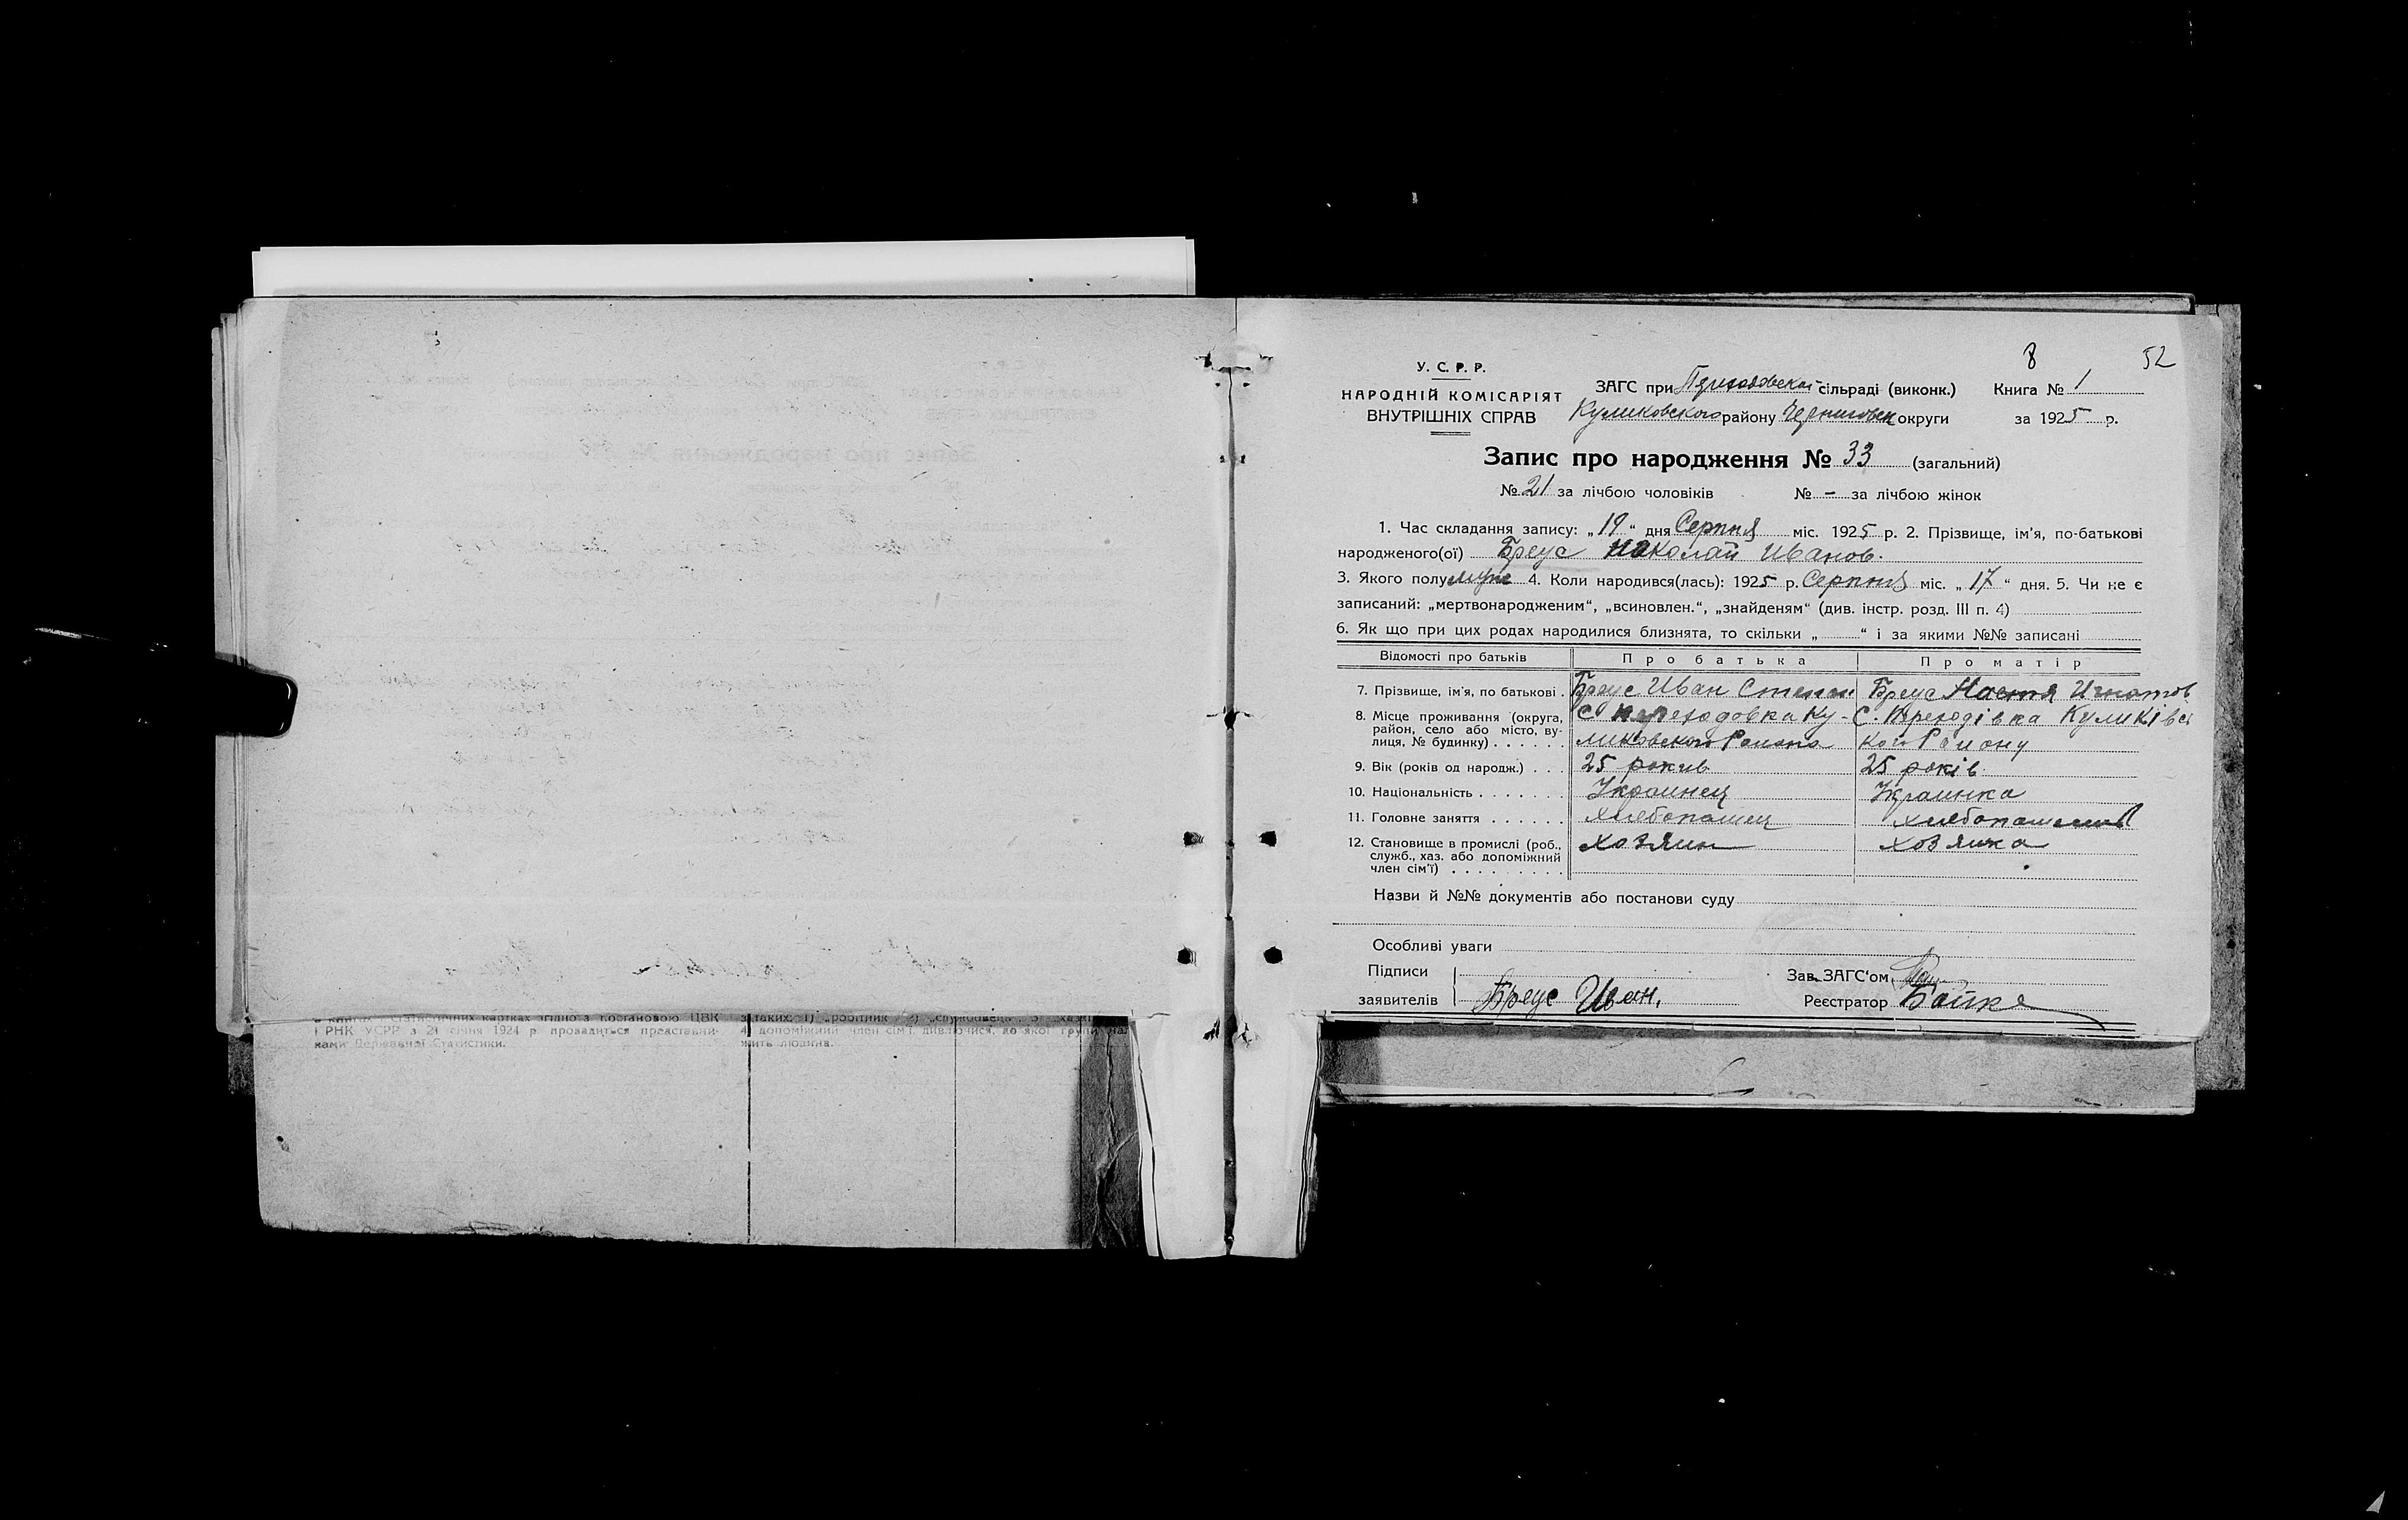 8 52
У. С. Р. Р.
НАРОДНІЙ КОМІСАРІЯТ
ВНУТРІШНІХ СПРАВ
ЗАГС при сільраді (виконк.) Книга № 1
Куликовского району Черниговск округи за 1925 р.
Запис про народження № 33 (загальний)
№ 21 за лічбою чоловіків № – за лічбою жінок
1. Час складання запису: „19“ дня Серпня міс. 1925 р. 2. Прізвище, ім’я, по-батькові
народженого(ої) Бреус Николай Иванов.
3. Якого полу муж 4. Коли народився(лась): 1925 р. Серпня міс. „17“ дня. 5. Чи не є
записаний: „мертвонародженим“, „всиновлен.“, „знайденям“ (див. інстр. розд. III п. 4)
6. Як що при цих родах народилися близнята, то скільки „ “ і за якими №№ записані
Відомості про батьків Про батька Про матір
7. Прізвище, ім’я, по батькові . Бреус Иван Степан Бреус Настя Игнатов
8. Місце проживання (округа, С Переходовка Ку- С. Переходівка Куликівс
район, село або місто, ву-
лиця, № будинку) . . . . . . ликовского Района кого Району
9. Вік (років од народж.) . . . 25 рокив 25 років
10. Національність . . . . . . . Украинец Украинка
11. Головне заняття . . . . . . Хлебопашец
12. Становище в промислі (роб., хозяин хозяйка
служб., хаз. або допоміжний
член сім’ї) . . . . . . . . .
Назви й №№ документів або постанови суду
Особливі уваги
Підписи
заявителів Бреус Иван.
Зав. ЗАГС‘ом
Реєстратор Бойко
І РНК УСРР з 21 січня 1924 р. провадиться представни-
ками Державної Статистики.
4) допоміжний член сім’ї, дивлючися, до якої групи на
жить людина.